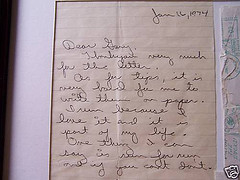 Jan 16, 1974
Dear Gary,
Thank you very much
for the letter.
As for tips, it is
very hard for me to
write them on paper.
I run because I
love it and it is
part of my life.
One thing I can
say is run for fun
and if you can't don't.